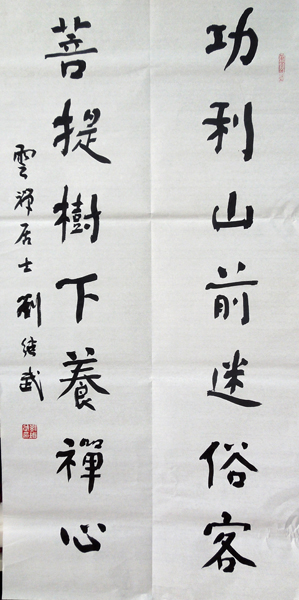 功利山前迷俗客
菩提樹下養禪心
雲禪居士劉繼武